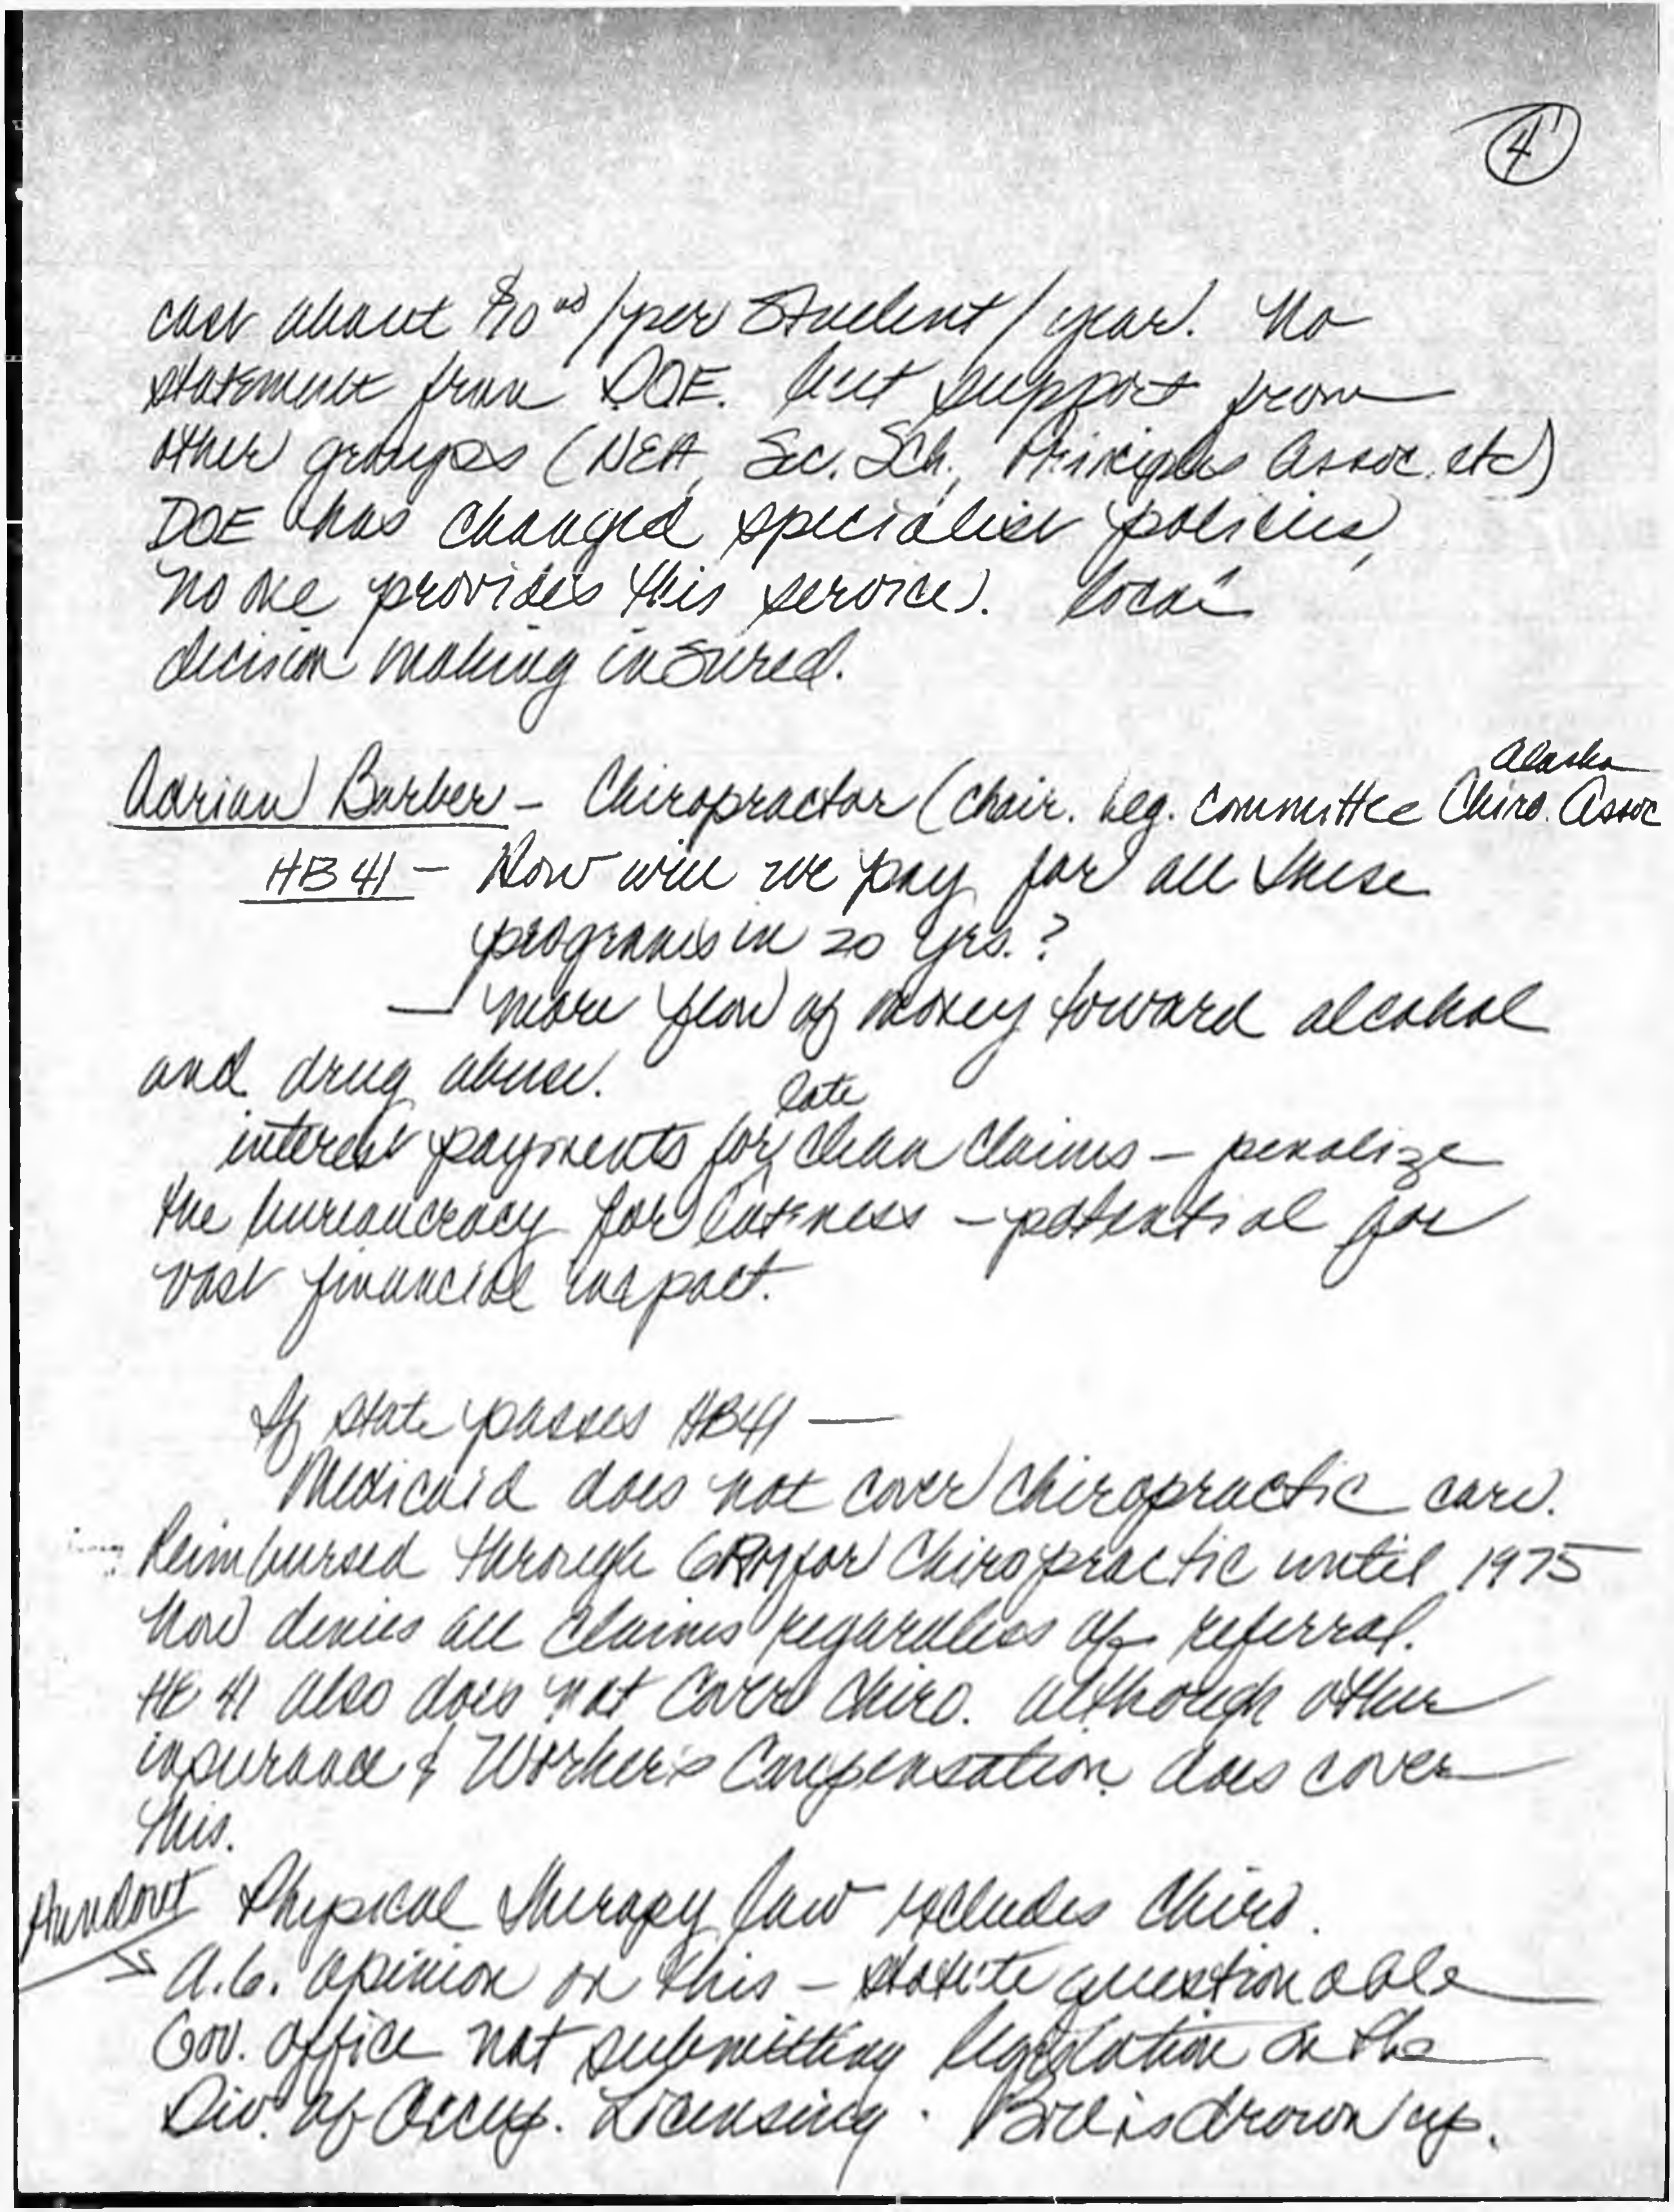 4
cost about $10.00/per Student/year. No
statement from DOE. but support from
other groups (NEA, Sec. Sch., Principles Assoc. etc)
DOE has changed specialist policies,
no one provides this service. local
decision making insured.
Adrian Barber - Chiropractor (Chair. Leg. Committee Alaska Chiro. Assoc
HB 41 - How will we pay for all these
programs in 20 yrs.?
— more flow of money toward alcohol
and drug abuse.
interest payments for late clean claims - penalize
the bureaucracy for lateness - potential for
vast financial impact.
If state passes HB41 —
Medicaid does not cover chiropractic care.
Reimbursed through for Chiropractic until 1975
Now denies all claims regardless of referral.
HB 41 also does not cover chiro. although other
insurance & Worker's Compensation does cover
this.
Handout Physical Therapy law excludes Chiro.
A.G. opinion on this - statute questionable
Gov. office not submitting legislation on the
Div. of Occup. Licensing. Bill is drawn up.